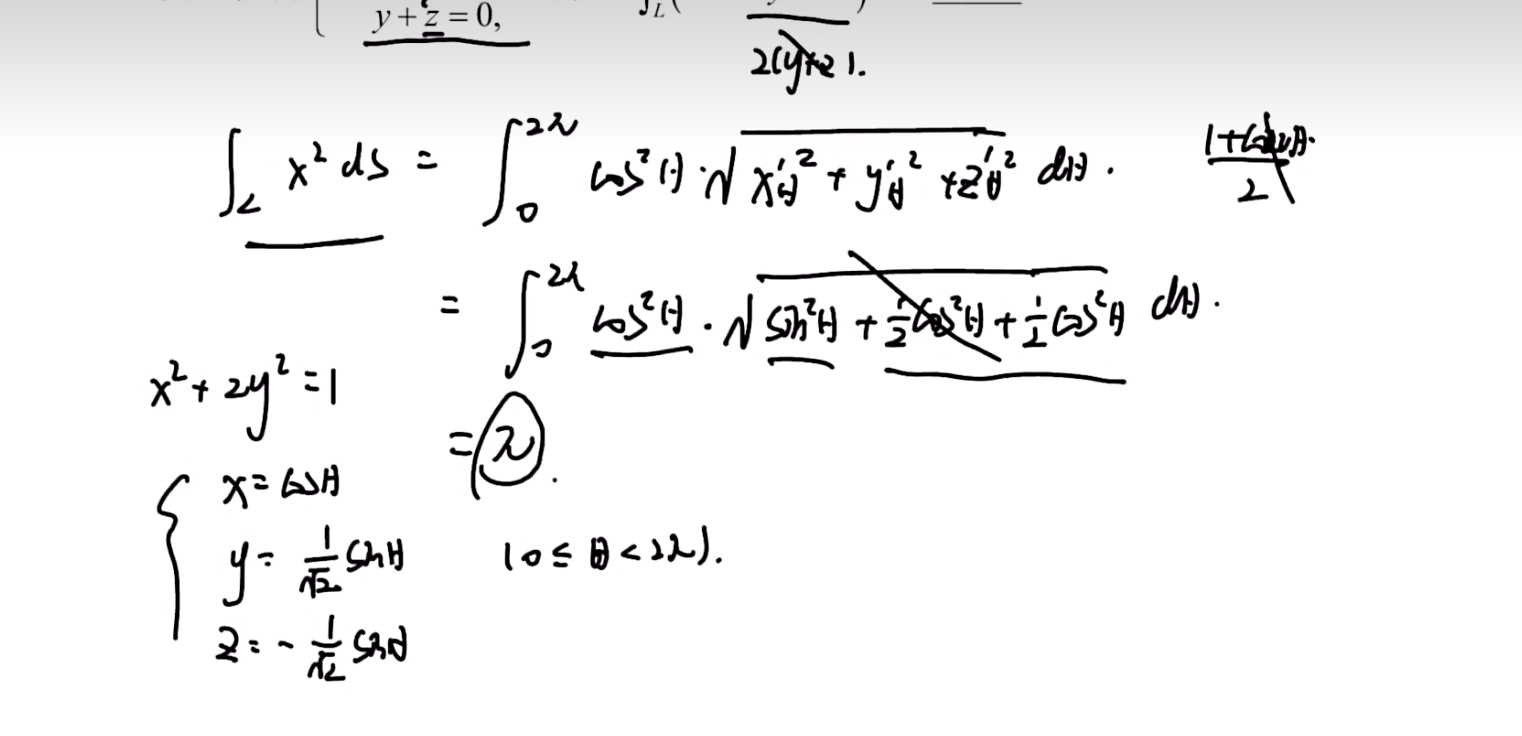 y+z=0, ∫_L(
2(y+z).
∫_L x² ds = ∫_0^{2π} cos²θ · √(x'_θ² + y'_θ² + z'_θ²) dθ. (1+cos2θ)/2
= ∫_0^{2π} cos²θ · √(sin²θ + ½cos²θ + ½cos²θ) dθ.
x² + 2y² = 1
= π.
{ x = cosθ
y = 1/√2 sinθ (0 ≤ θ < 2π).
z = - 1/√2 sinθ